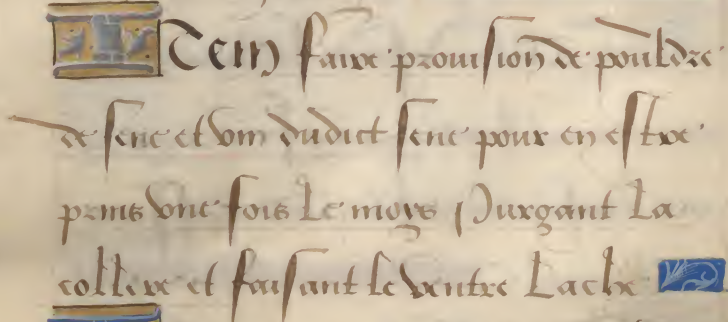 Item faire prouision de pouldre
de sene et vin dudict sene pour en estre
prins vne fois le moys Purgant La
collere et faisant le ventre Lache